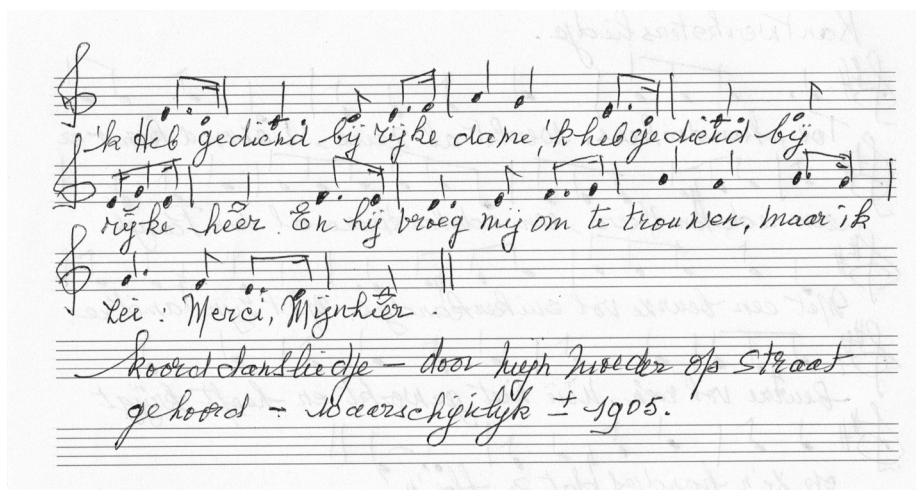 'k Heb gediend bij rijke dame 'k heb gediend bij
rijke heer. En hij vroeg mij om te trouwen, maar ik
zei: Merci, Mijnheer.
Koorddansliedje – door mijn moeder op straat
gehoord – waarschijnlijk ± 1905.